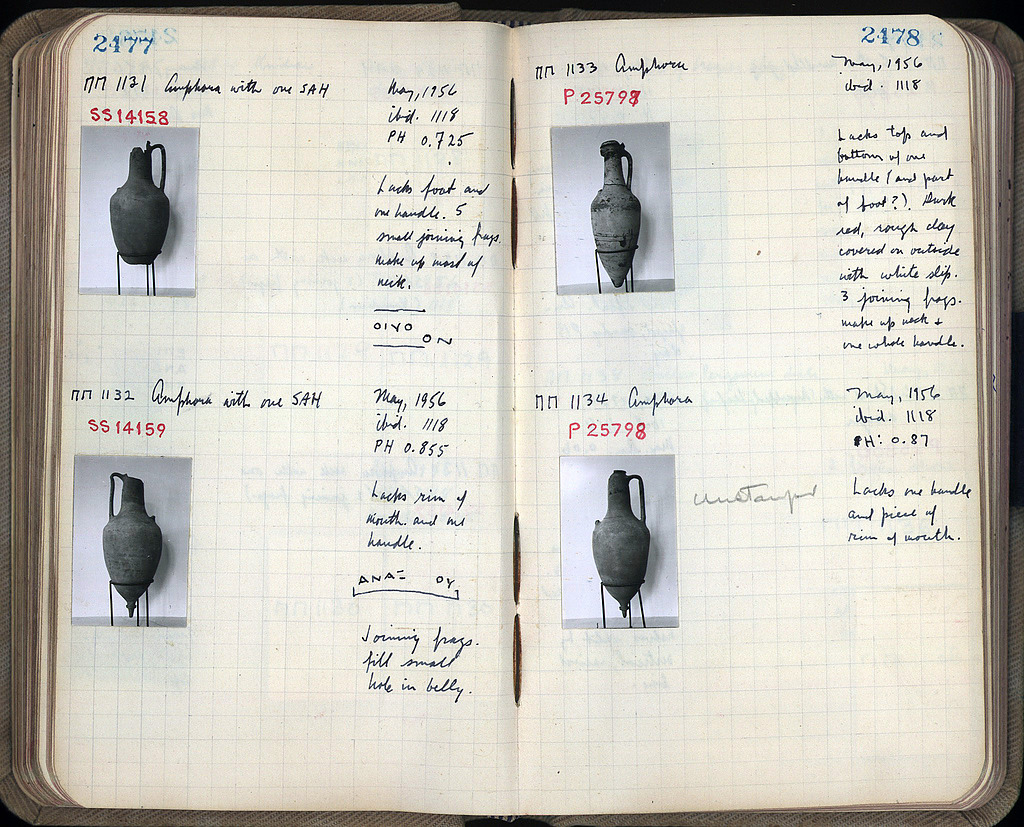 2477
ΠΠ 1131 Amphora with one SAH
SS 14158
May, 1956
ibid. 1118
PH 0.725
Lacks foot and
one handle. 5
small joining frags.
make up most of
neck.
OINO
ON
ΠΠ 1132 Amphora with one SAH
SS 14159
May, 1956
ibid. 1118
PH 0.855
Lacks rim of
mouth and one
handle.
ANAΞ OY
Joining frags.
fill small
hole in belly.
2478
ΠΠ 1133 Amphora
P 25797
May, 1956
ibid. 1118
Lacks top and
bottom of one
handle (and part
of foot?). Dark
red, rough clay
covered on outside
with white slip.
3 joining frags.
make up neck +
one whole handle.
ΠΠ 1134 Amphora
P 25798
May, 1956
ibid. 1118
PH: 0.87
unstamped
Lacks one handle
and piece of
rim of mouth.